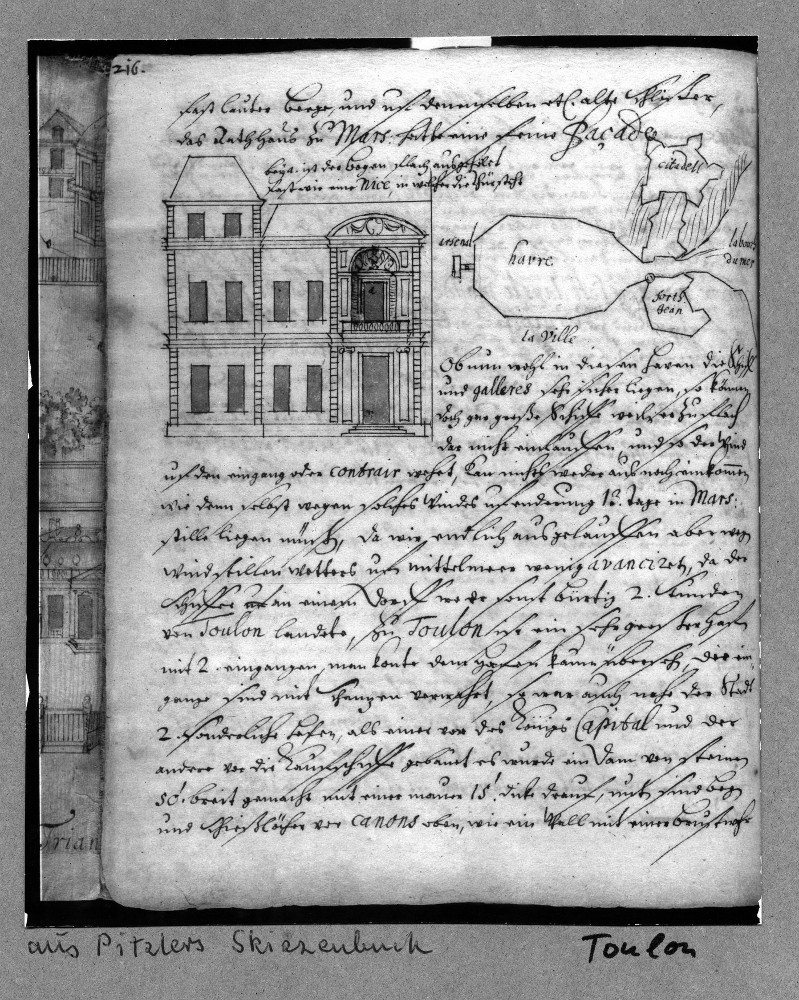 216.
fast lauter berge, und uf demenselben etl. alte Schlösser,
das Rathhaus zu Mars. hatte eine feine Façade
beÿ a. ist der bogen flach ausgehölt
fast wie eine Nice, in welcher die thür steht
citadell
arsenal
havre
la bouche
du mer
forth
Jean
la Ville
Ob nun wohl in diesen haven die Schif
und galleres sehr sicher liegen, so können
doch gar große Schiffe weil es zu flach
dar nicht einlauffen, und so der Wind
uf den eingang oder contrair wehet, kan nichts weder aus noch einkommen
wie denn selbst wegen solches Windes 13. tage in Mars:
stille liegen müste, da wir endlich ausgelauffen aber wegen
windstillen wetters ufn mittelmeer wenig avancireten, da der
Schiffer an einem Dorff wo er sonst bürtig 2. stunden
von Toulon landete, Zu Toulon ist ein sehr großer haffen
mit 2. eingangen, man konte den kaum übersehen, die ein-
gange sind mit schanzen verwahrt, so war auch nahe der Stadt
2. sonderliche hafen, als einer vor des Königs Capital und der
andere vor die Kauffschiffe gebauet es wurde ein Dam von steinen
50' breit gemacht mit einer mauer 15' dicke drauf, unten sind bogen
und schießlöcher vor canons oben, wie ein Wall mit einer brustwehr
Trian
aus Pitzlers Skizzenbuch
Toulon